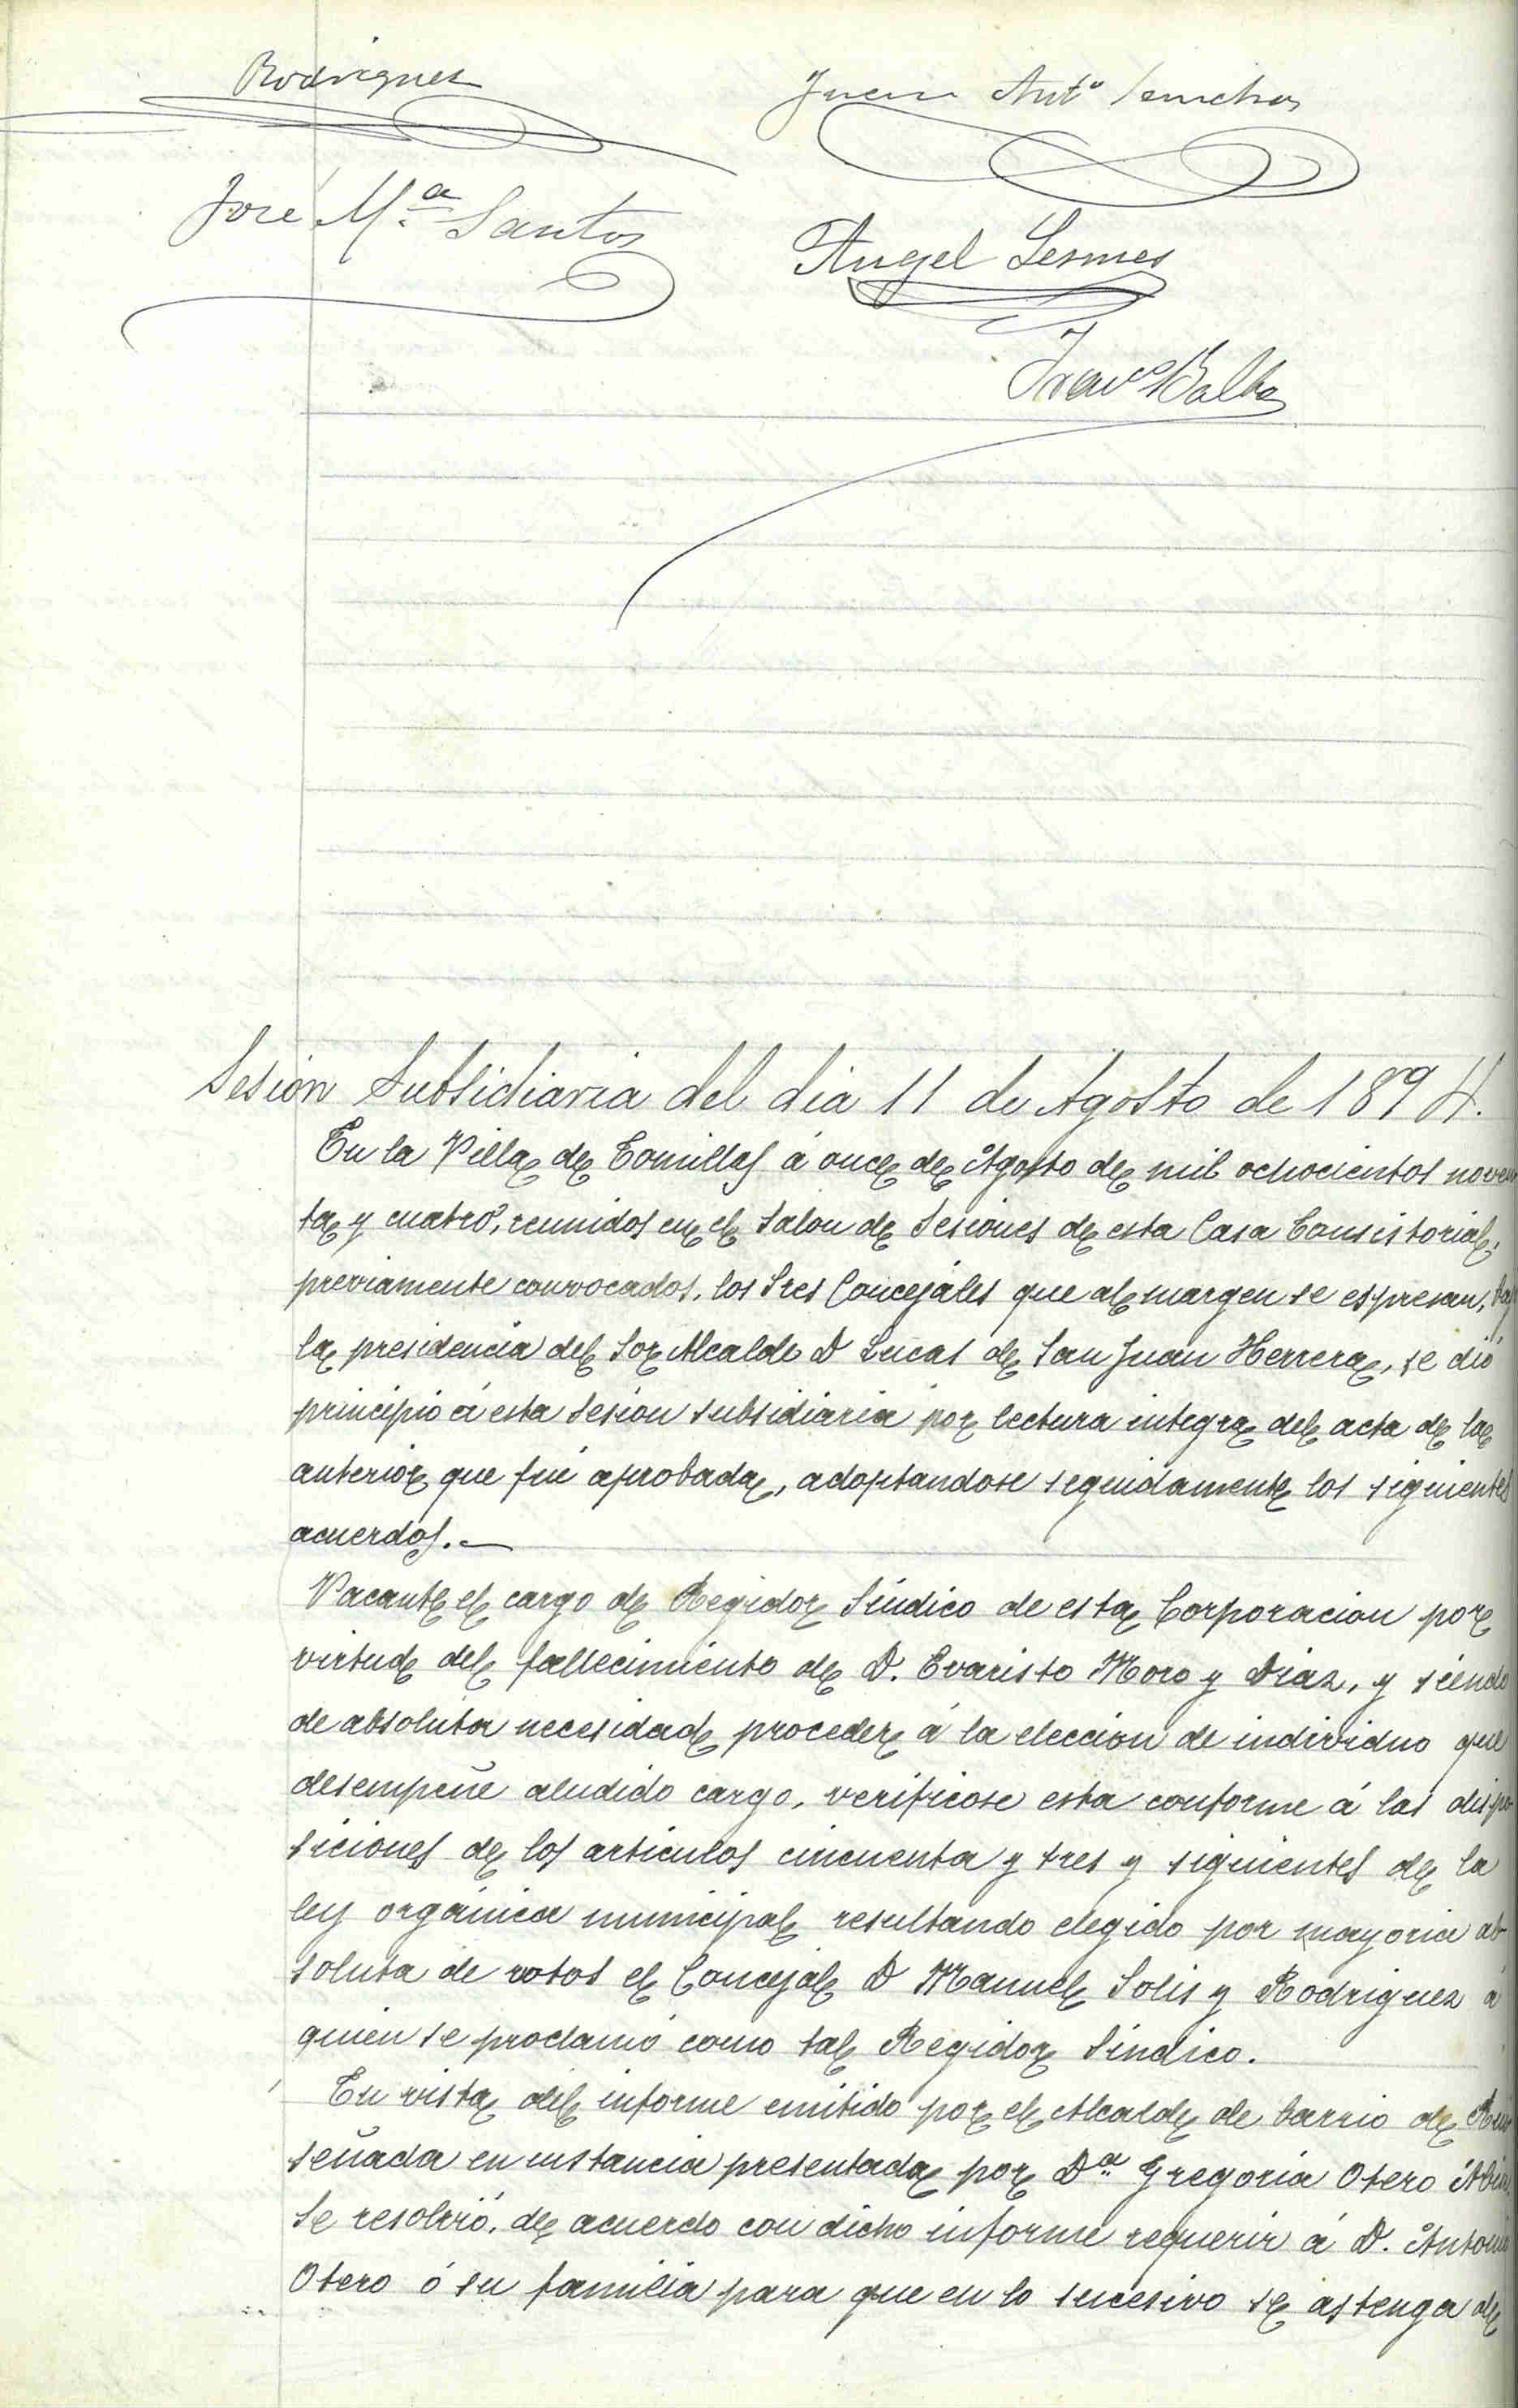 Rodriguez
Juan Antº Sanchez
José M.ª Santos
Angel Lesmes
Franco Balba
Sesión Subsidiaria del dia 11 de Agosto de 1894.
En la Villa de Comillas á once de Agosto de mil ochocientos noven
ta y cuatro, reunidos en el Salon de Sesiones de esta Casa Consistorial,
previamente convocados, los Sres Concejáles que al margen se espresan, bajo
la presidencia del Sor Alcalde D Lucas de San Juan Herrera, se dió
principio á esta sesion subsidiaria por lectura integra del acta de la
anterior que fué aprobada, adoptandose seguidamente los siguientes
acuerdos.—
Vacante el cargo de Regidor Síndico de esta Corporacion por
virtud del fallecimiento de D. Evaristo Moro y Diaz, y siendo
de absoluta necesidad proceder á la eleccion de individuo que
desempeñe aludido cargo, verificose esta conforme á las dispo
siciones de los artículos cincuenta y tres y siguientes de la
ley orgánica municipal resultando elegido por mayoria ab
soluta de votos el Concejal D Manuel Solis y Rodriguez á
quien se proclamó como tal Regidor Síndico.
En vista del informe emitido por el Alcalde de barrio de Rui
señada en instancia presentada por Dª Gregoria Otero
se resolvió, de acuerdo con dicho informe requerir á D. Antonio
Otero ó su familia para que en lo sucesivo se astenga de